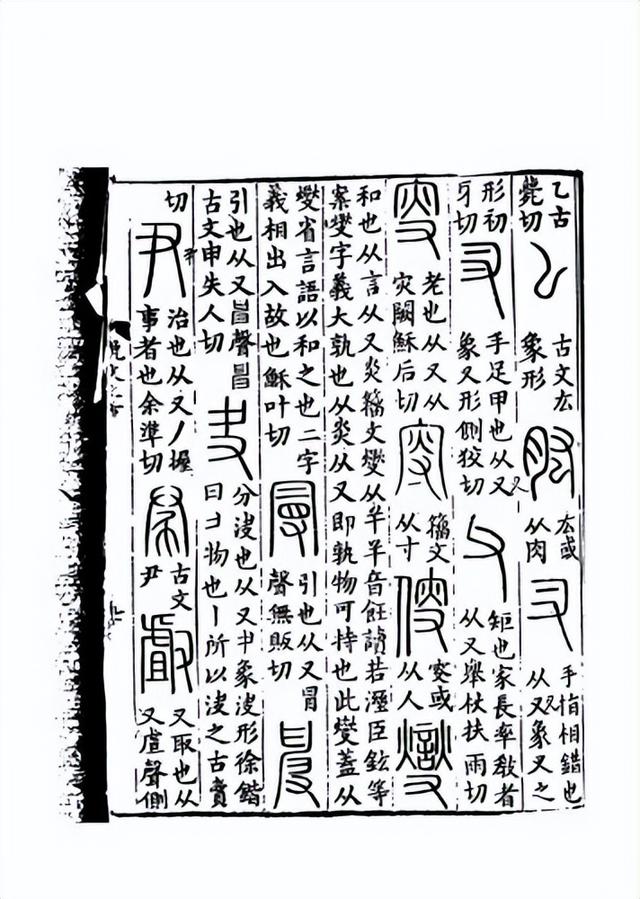 乙古
薨切
𠃋
古文厷
象形
肱
厷或
从肉
叉
手指相錯也
从又象叉之
形初
牙切
㕚
手足甲也从又
象叉形側狡切
父
矩也家長率敎者
从又舉杖扶雨切
㕜
老也从又从
灾闕穌后切
籒文
从寸
傁
㕜或
从人
燮
和也从言从又炎籒文燮从𢆉𢆉音飪讀若溼臣鉉等
案燮字義大孰也从炎从又即孰物可持也此燮蓋从
燮省言語以和之也二字
義相出入故也穌叶切
曼
引也从又冒
聲無販切
引也从又𦥔聲𦥔
古文申失人切
夬
分決也从又𠀎象決形徐鍇
曰コ物也丨所以決之古賣
切
尹
治也从又丿握
事者也余準切
古文
尹
㪥
又取也从
又虘聲側